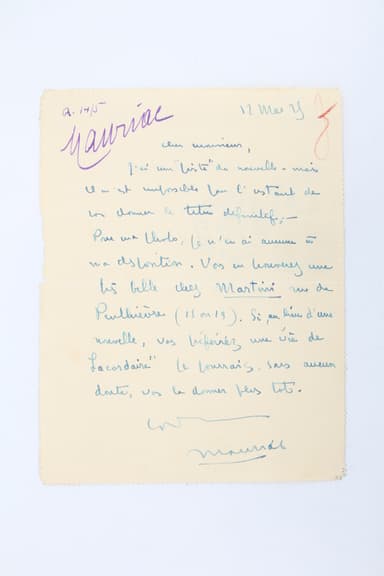 a. 14/5
Mauriac
12 Mai 25
Cher monsieur,
J'ai une "piste" de nouvelle - mais
il m'est impossible pour l'instant de
vous donner le titre définitif. -
Pour ma photo, je n'en ai aucune à
ma disposition. Vous en trouverez une
très belle chez Martinie rue de
Penthièvre (11 ou 19). Si, au lieu d'une
nouvelle, vous préfériez une "vie de
Lacordaire" je pourrais, sans aucun
doute, vous la donner plus tôt.
Mauriac